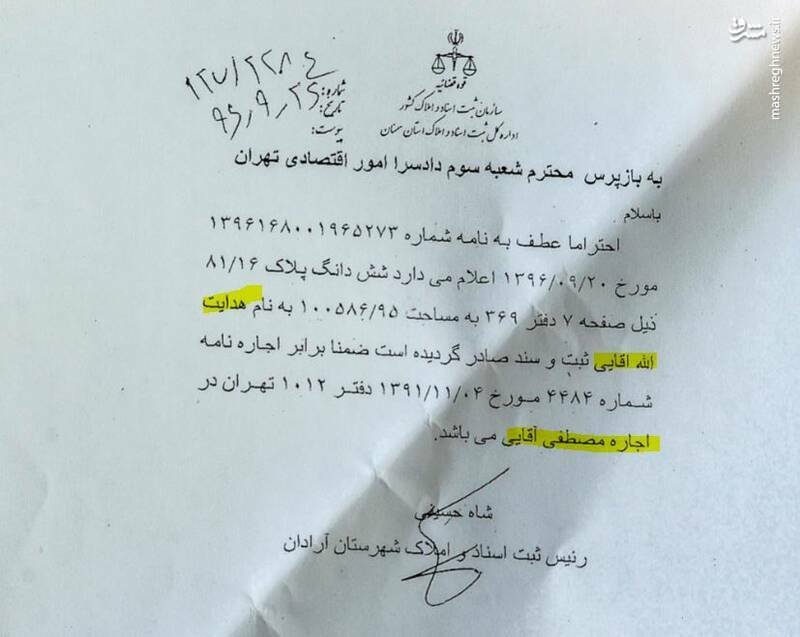 قوه قضائیه
سازمان ثبت اسناد و املاک کشور
اداره کل ثبت اسناد و املاک استان سمنان
شماره: ۱۲۷/۲۲۸۰۴
تاریخ: ۹۶,۹,۲۶
پیوست:
به بازپرس محترم شعبه سوم دادسرا امور اقتصادی تهران
باسلام
احتراما عطف به نامه شماره ۱۳۹۶۱۶۸۰۰۱۹۶۵۲۷۳
مورخ ۱۳۹۶/۰۹/۲۰ اعلام می دارد شش دانگ پلاک ۸۱/۱۶
ذیل صفحه ۷ دفتر ۳۶۹ به مساحت ۱۰۰۵۸۶/۹۵ به نام هدایت
الله اقایی ثبت و سند صادر گردیده است ضمنا برابر اجاره نامه
شماره ۴۴۸۴ مورخ ۱۳۹۱/۱۱/۰۴ دفتر ۱۰۱۲ تهران در
اجاره مصطفی آقایی می باشد.
شاه حسینی
رئیس ثبت اسناد و املاک شهرستان آرادان
مشرق
mashreghnews.ir